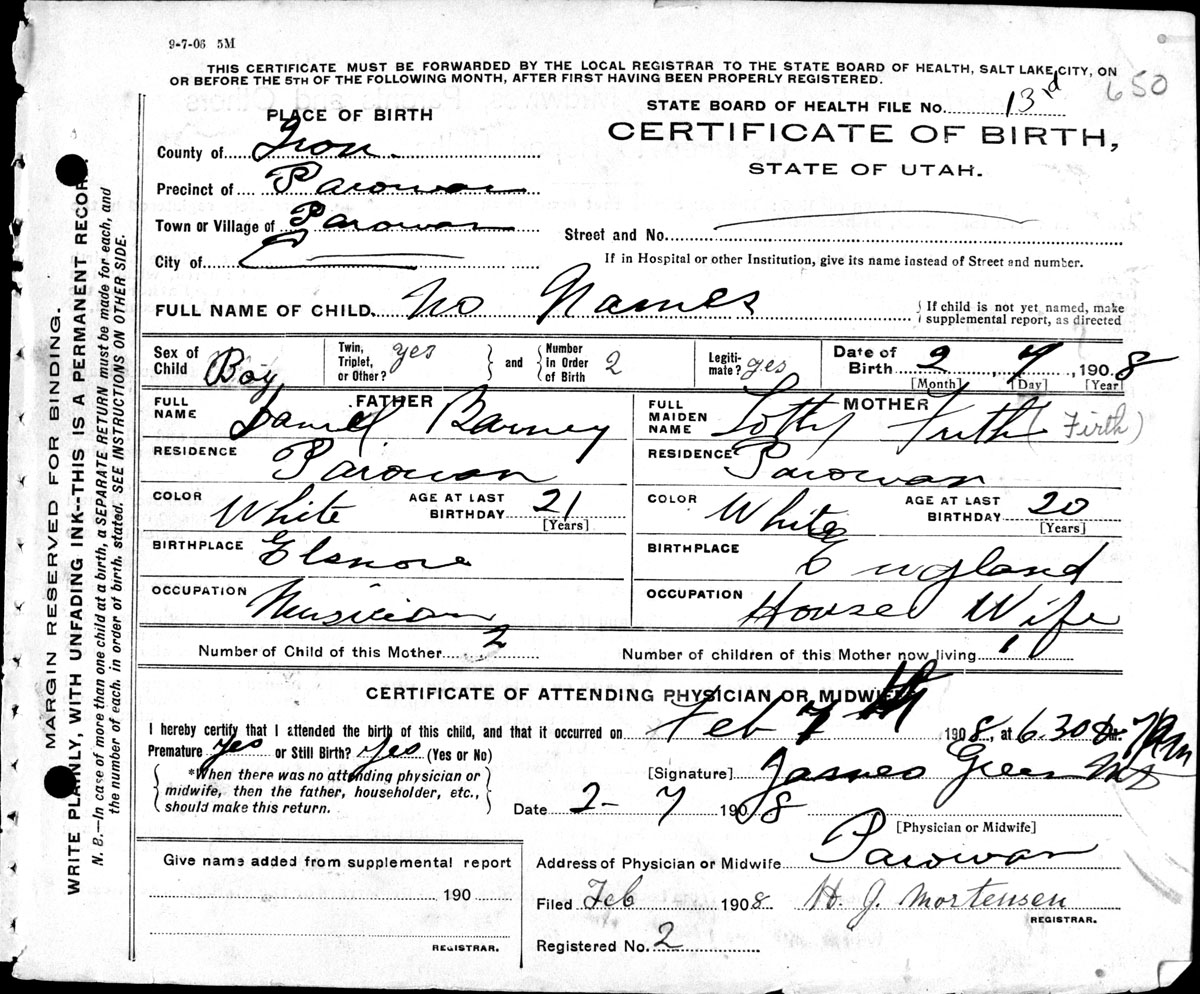 9-7-06 5M
THIS CERTIFICATE MUST BE FORWARDED BY THE LOCAL REGISTRAR TO THE STATE BOARD OF HEALTH, SALT LAKE CITY, ON
OR BEFORE THE 5TH OF THE FOLLOWING MONTH, AFTER FIRST HAVING BEEN PROPERLY REGISTERED.
650
STATE BOARD OF HEALTH FILE No. 13rd
PLACE OF BIRTH
CERTIFICATE OF BIRTH,
STATE OF UTAH.
County of Iron.
Precinct of Parowan
Town or Village of Parowan
City of
Street and No.
If in Hospital or other Institution, give its name instead of Street and number.
FULL NAME OF CHILD. No Names
If child is not yet named, make
supplemental report, as directed
Sex of Child Boy Twin, Triplet, or Other? yes and Number in Order of Birth 2 Legiti-mate? yes Date of Birth 2, 7, 1908
[Month] [Day] [Year]
FATHER
FULL NAME Daniel Barney
RESIDENCE Parowan
COLOR White AGE AT LAST BIRTHDAY 21
[Years]
BIRTHPLACE Elsnore
OCCUPATION Musician
MOTHER
FULL MAIDEN NAME Lotty Frith (Firth)
RESIDENCE Parowan
COLOR White AGE AT LAST BIRTHDAY 20
[Years]
BIRTHPLACE England
OCCUPATION House Wife
Number of Child of this Mother 2 Number of children of this Mother now living 1
CERTIFICATE OF ATTENDING PHYSICIAN OR MIDWIFE
I hereby certify that I attended the birth of this child, and that it occurred on Feb 7th 1908, at 6.30 M. 7 am
Premature yes or Still Birth? yes (Yes or No)
*When there was no attending physician or
midwife, then the father, householder, etc.,
should make this return.
[Signature] James Green MD
Date 2-7 1908
[Physician or Midwife]
Give name added from supplemental report
190
REGISTRAR.
Address of Physician or Midwife Parowan
Filed Feb 1908 H. J. Mortensen
REGISTRAR.
Registered No. 2
MARGIN RESERVED FOR BINDING.
WRITE PLAINLY, WITH UNFADING INK--THIS IS A PERMANENT RECORD.
N. B.—In case of more than one child at a birth, a SEPARATE RETURN must be made for each, and
the number of each, in order of birth, stated. SEE INSTRUCTIONS ON OTHER SIDE.